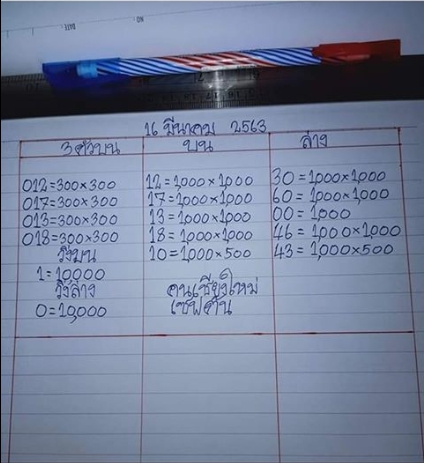 NO.
DATE
16 มีนาคม 2563
3ตัวบน บน ล่าง
012=300×300 12=1,000×1,000 30=1,000×1,000
017=300×300 17=1,000×1,000 60=1,000×1,000
013=300×300 13=1,000×1,000 00=1,000
018=300×300 18=1,000×1,000 46=1,000×1,000
วิ่งบน 10=1,000×500 43=1,000×500
1=10,000
วิ่งล่าง คนเชียงใหม่
0=10,000